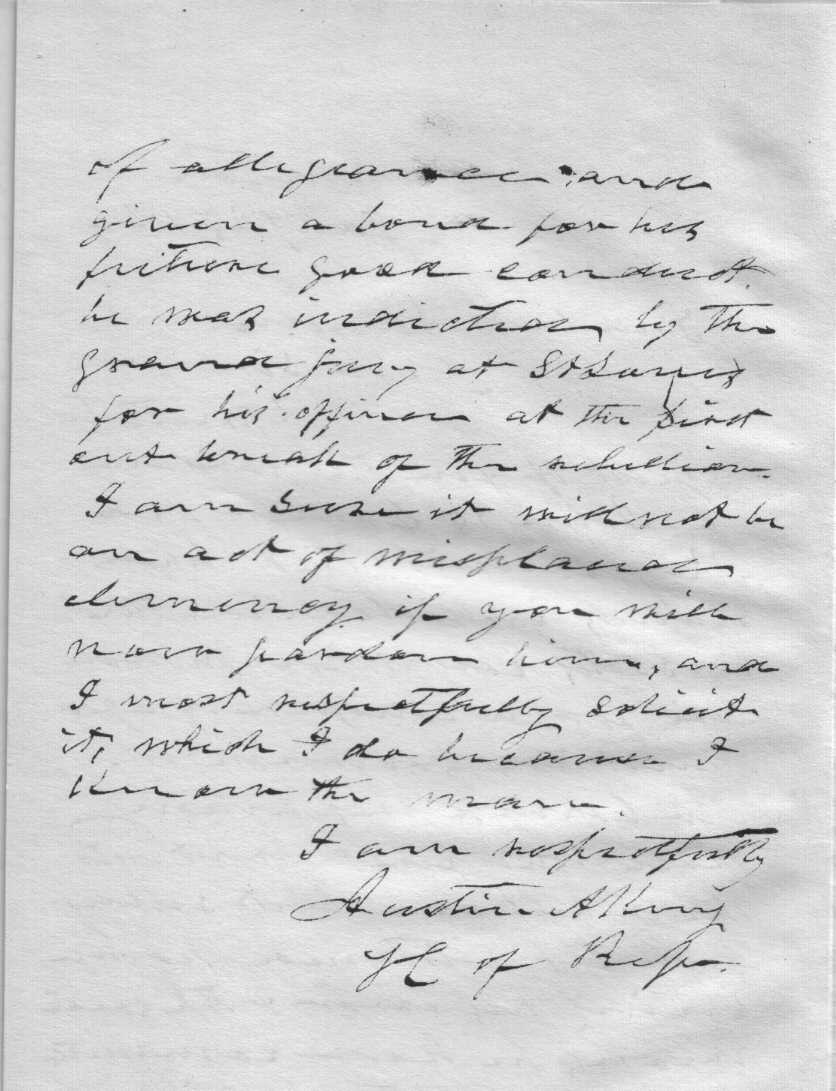 of allegiance and
given a bond for his
future good conduct.
he was indicted by the
grand jury at St Louis
for his offince at the first
out break of the rebellion.
I am sure it will not be
an act of misplaced
clemency if you will
now pardon him, and
I most respectfully solicit
it, which I do because I
know the man.
I am respectfully
Austin A King
H of Rep.